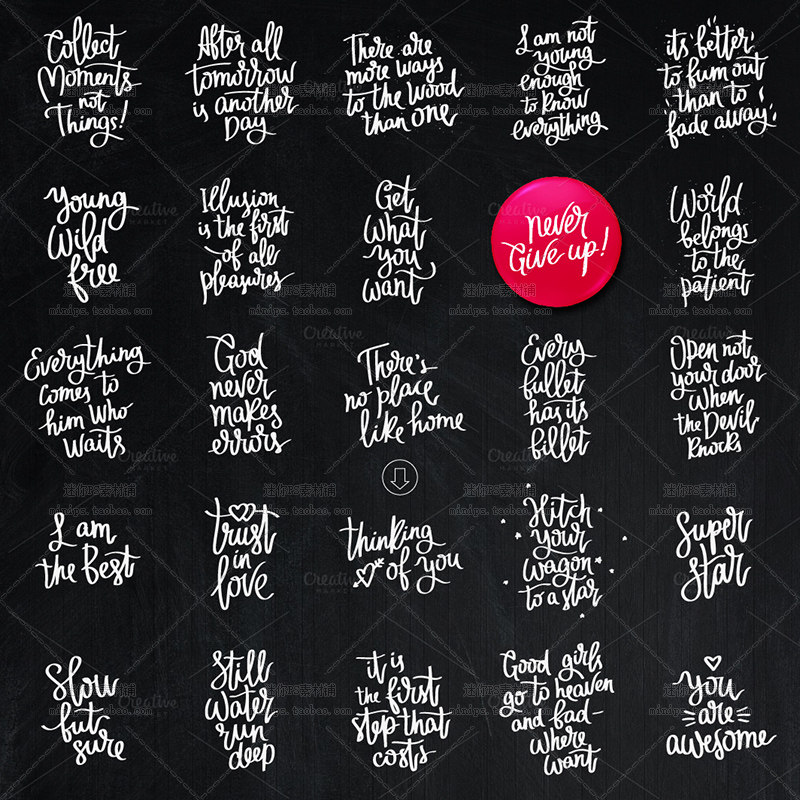 Collect
Moments
not
Things!
After all
tomorrow
is another
Day
There are
more ways
to the wood
than one
I am not
young
enough
to know
everything
it's better
to bum out
than to
fade away
Young
Wild
free
Illusion
is the first
of all
pleasures
Get
What
you
want
never
Give up!
World
belongs
to the
patient
Everything
comes to
him who
waits
God
never
makes
errors
There's
no place
like home
Every
bullet
has its
billet
Open not
your door
when
the Devil
knocks
I am
the best
trust
in
love
thinking
of you
Hitch
your
wagon
to a star
Super
Star
Slow
but
sure
Still
water
run
deep
it is
the first
step that
costs
Good girls
go to heaven
and bad-
where
want
You
are
awesome
Creative
MARKET
迷你PS素材铺
minips.taobao.com